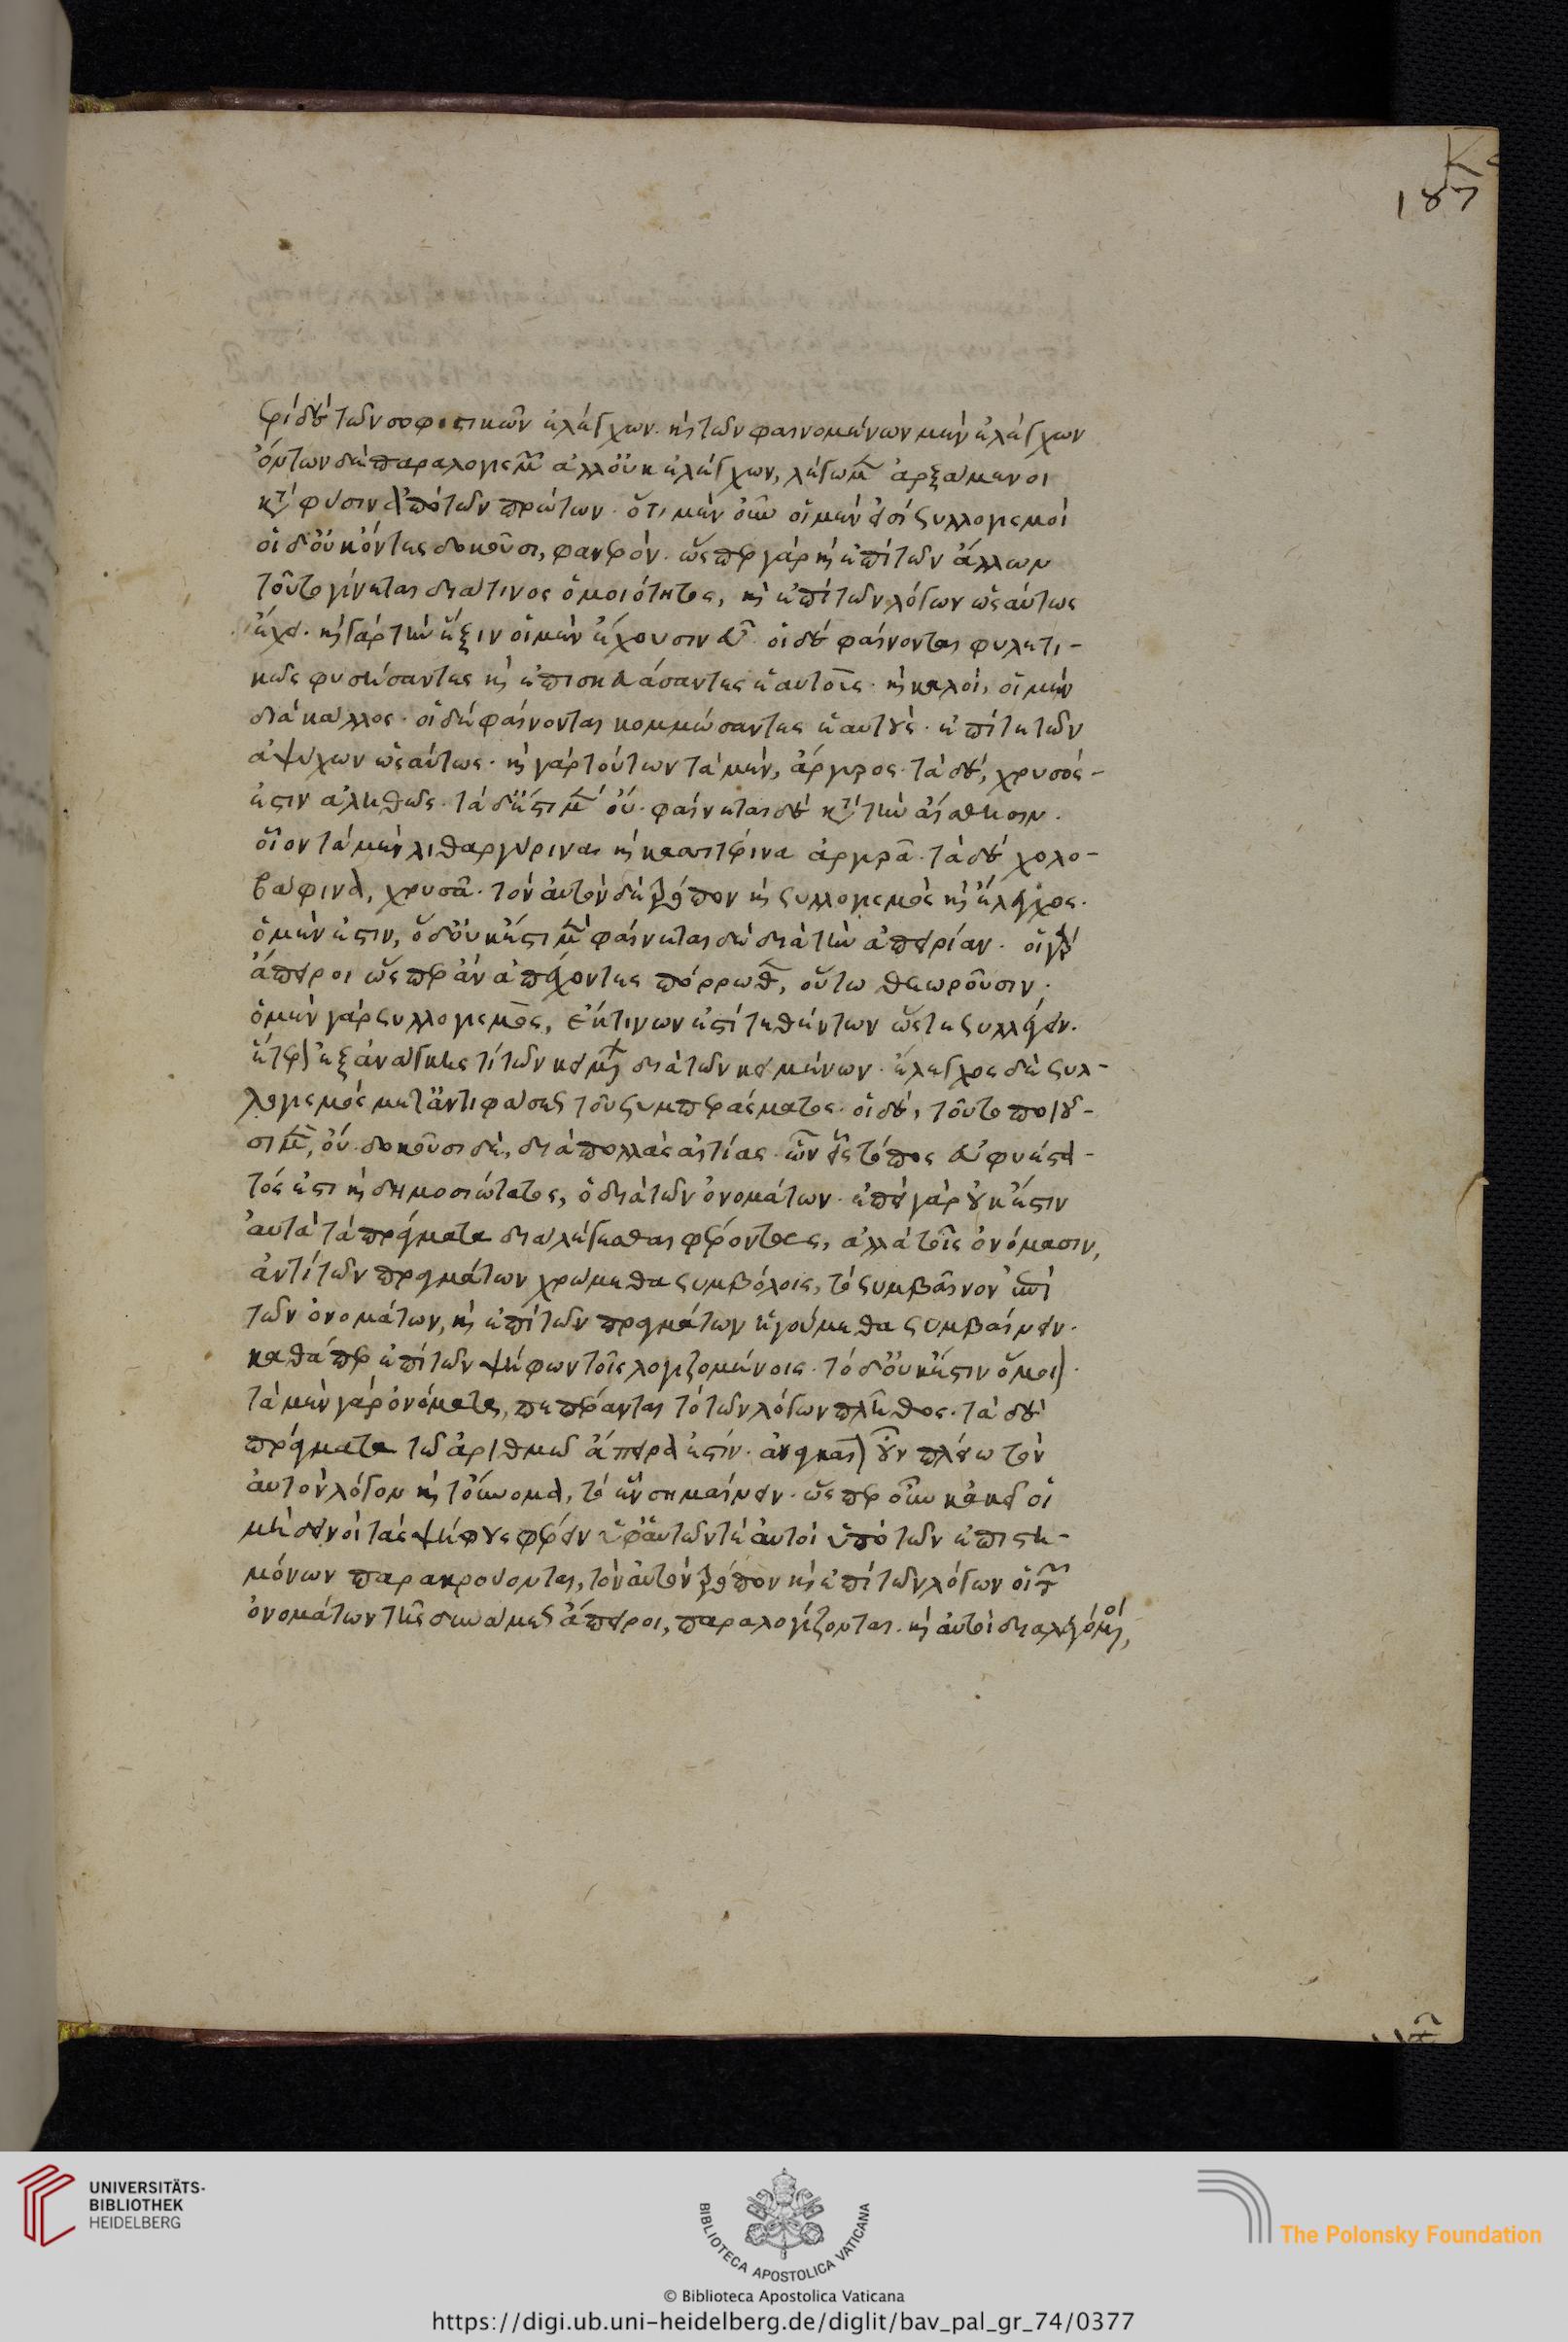 Κς
187
ερὶ δὲ τῶν σοφιστικῶν ἐλέγχων. καὶ τῶν φαινομένων μὲν ἐλέγχων
ὄντων δὲ παραλογισμῶν ἀλλ' οὐκ ἐλέγχων, λέγωμεν ἀρξάμενοι
κατὰ φύσιν ἀπὸ τῶν πρώτων. ὅτι μὲν οὖν οἱ μὲν εἰσὶ συλλογισμοὶ
οἱ δ' οὐκ ὄντες δοκοῦσι, φανερόν. ὥσπερ γὰρ καὶ ἐπὶ τῶν ἄλλων
τοῦτο γίνεται διά τινος ὁμοιότητος, καὶ ἐπὶ τῶν λόγων ὡσαύτως
ἔχει. καὶ γὰρ τὴν ἕξιν οἱ μὲν ἔχουσιν εὖ. οἱ δὲ φαίνονται φυλετι-
κῶς φυσήσαντες καὶ ἐπισκευάσαντες ἑαυτοῖς. καὶ καλοὶ, οἱ μὲν
διὰ κάλλος. οἱ δὲ φαίνονται κομμώσαντες ἑαυτούς. ἐπί τε τῶν
ἀψύχων ὡσαύτως. καὶ γὰρ τούτων τὰ μὲν, ἄργυρος. τὰ δὲ, χρυσός-
ἐστιν ἀληθῶς. τὰ δ' ἔστι μὲν οὔ. φαίνεται δὲ κατὰ τὴν αἴσθησιν.
οἷον τὰ μὲν λιθαργύρινα καὶ κασσιτέρινα ἀργυρᾶ. τὰ δὲ χολο-
βάφινα, χρυσᾶ. τὸν αὐτὸν δὲ τρόπον καὶ συλλογισμὸς καὶ ἔλεγχος.
ὁ μὲν ἐστιν, ὁ δ' οὐκ ἔστι μὲν φαίνεται δὲ διὰ τὴν ἀπειρίαν. οἱ γὰρ
ἄπειροι ὥσπερ ἂν ἀπέχοντες πόρρωθεν, οὕτω θεωροῦσιν.
ὁ μὲν γὰρ συλλογισμὸς, ἐκ τινων ἐστὶ τεθέντων ὥστε συλλέγειν.
ἕτερον ἐξ ἀνάγκης τι τῶν κειμένων διὰ τῶν κειμένων. ἔλεγχος δὲ συλ-
λογισμὸς μετ' ἀντιφάσεως τοῦ συμπεράσματος. οἱ δὲ, τοῦτο ποιοῦ-
σι μὲν, οὔ. δοκοῦσι δὲ, διὰ πολλὰς αἰτίας. ὧν εἷς τόπος εὐφυέστα-
τός ἐστι καὶ δημοσιώτατος, ὁ διὰ τῶν ὀνομάτων. ἐπεὶ γὰρ οὐκ ἔστιν
αὐτὰ τὰ πράγματα διαλέγεσθαι φέροντας, ἀλλὰ τοῖς ὀνόμασιν,
ἀντὶ τῶν πραγμάτων χρώμεθα συμβόλοις, τὸ συμβαῖνον ἐπὶ
τῶν ὀνομάτων, καὶ ἐπὶ τῶν πραγμάτων ἡγούμεθα συμβαίνειν.
καθάπερ ἐπὶ τῶν ψήφων τοῖς λογιζομένοις. τὸ δ' οὐκ ἔστιν ὅμοιον.
τὰ μὲν γὰρ ὀνόματα, πεπέρανται τὸ τῶν λόγων πλῆθος. τὰ δὲ
πράγματα τῷ ἀριθμῷ ἄπειρα ἐστίν. ἀναγκαῖον οὖν πλείω τὸν
αὐτὸν λόγον καὶ τοὔνομα, τὸ ἓν σημαίνειν. ὥσπερ οὖν κἀκεῖ οἱ
μὴ δεινοὶ τὰς ψήφους φέρειν ὑφ' αὑτῶν τε αὐτοὶ ὑπὸ τῶν ἐπιστη-
μόνων παρακρούονται, τὸν αὐτὸν τρόπον καὶ ἐπὶ τῶν λόγων οἱ τῶν
ὀνομάτων τῆς δυνάμεως ἄπειροι, παραλογίζονται. καὶ αὐτοὶ διαλεγόμενοι,
UNIVERSITÄTS-
BIBLIOTHEK
HEIDELBERG
BIBLIOTECA APOSTOLICA VATICANA
The Polonsky Foundation
© Biblioteca Apostolica Vaticana
https://digi.ub.uni-heidelberg.de/diglit/bav_pal_gr_74/0377